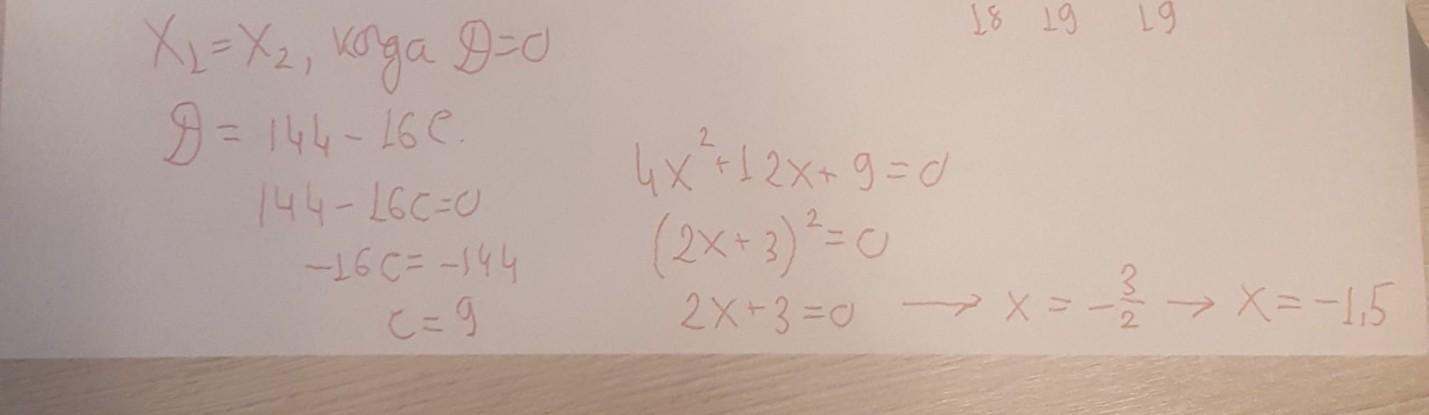 18 19 19
X₁=X₂, когда D=0
D = 144 - 16C.
144 - 16C=0
-16C = -144
C = 9
4x²+12x+9=0
(2x+3)²=0
2x+3=0 → x = -3/2 → x = -1,5